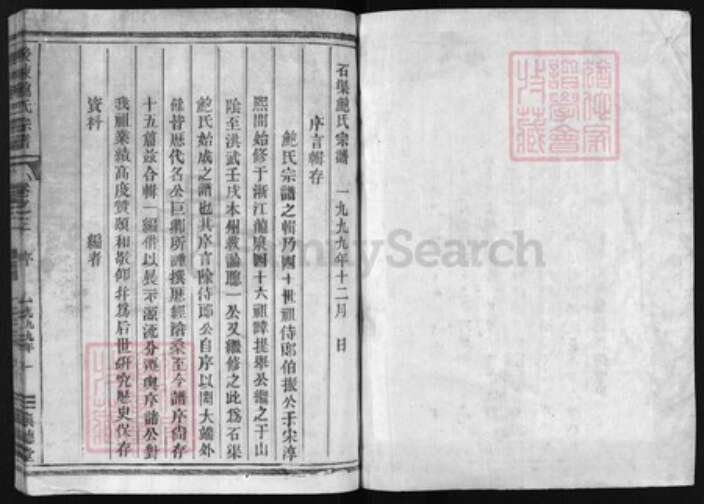 石渠鮑氏宗譜 一九九九年十二月 日
序言輯存
鮑氏宗譜之輯乃四十世祖侍郎伯振公于宋淳
熙間始修于浙江龍泉四十六祖諱提舉公繼之于山
陰至洪武壬戌本州教諭聽一公又繼修之此為石渠
鮑氏始成之譜也其序言除侍郎公自序以開大端外
繼昔歷代名公巨卿所譔撰歷經滄桑至今譜序尚存
十五篇茲合輯一編借以展示源流分運與序諸公對
我祖業績高度贊頌和敬仰并為后世研究歷史保存
資料 編者
鮑氏宗譜
卷之二 序
一九九九年
一
FamilySearch
譜學會
收藏